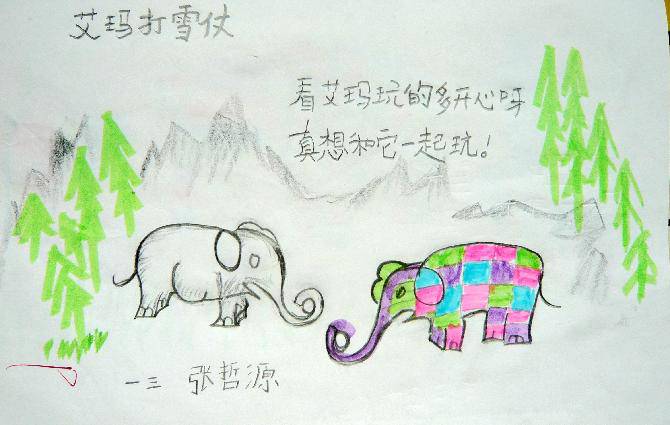 艾玛打雪仗
看艾玛玩的多开心呀
真想和它一起玩!
一三 张哲源